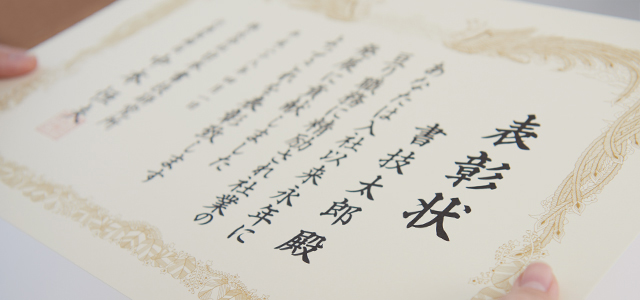 表彰状
書技太郎殿
あなたは入社以来永年に
亘り職務に精励され社業の
発展に貢献しました
よってこれを表彰致します